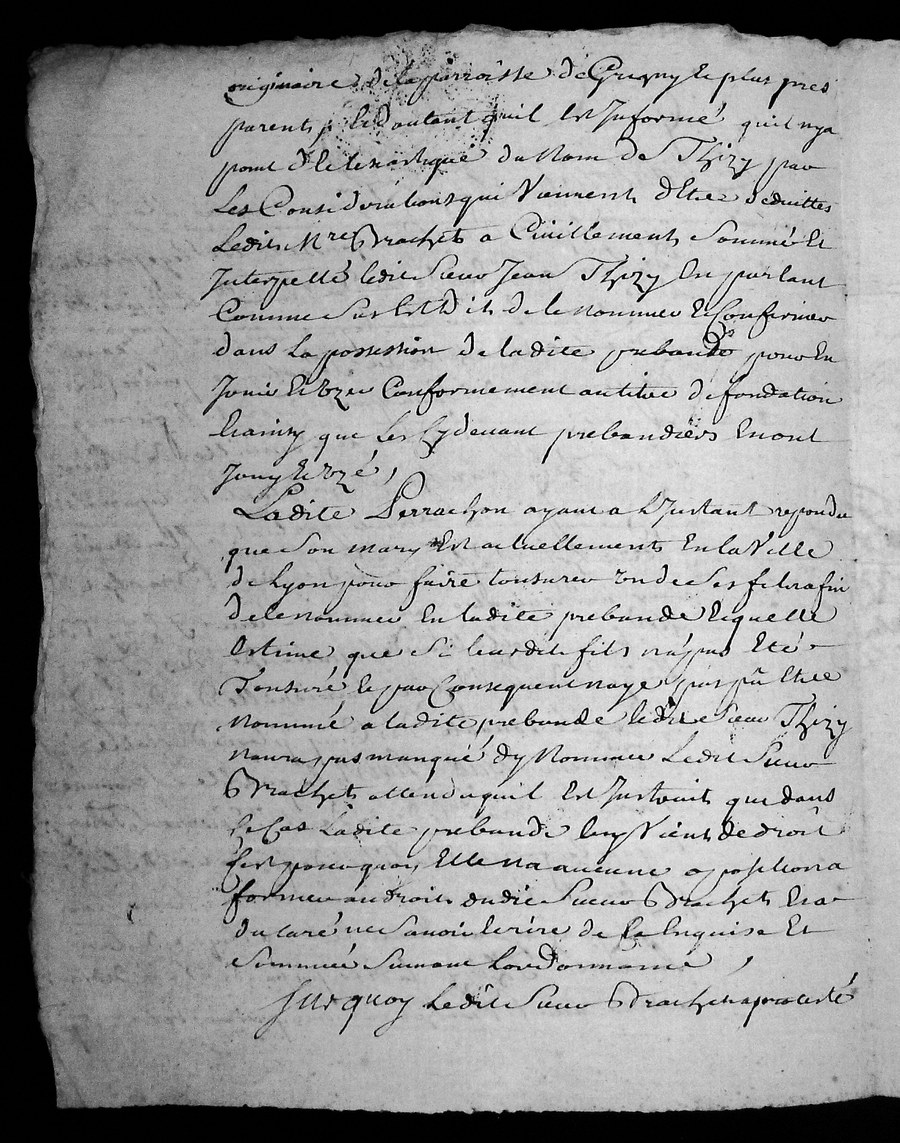 originaire de la parroisse de Grigny le plus pres
parent, et dautant quil est Informé quil nya
point dEclesiastique du Nom de Thizy par
Les Considerations qui Viennent dEtre deduittes
Ledit Mre Brachet a Civillement Sommé Et
Interpellé ledit Sieur Jean Thizy En parlant
Comme Sus Est Dit de le nommer et Confirmer
dans La possession de ladite prebande pour En
Jouir Et Uzer Conformement au titre de fondation
Et ainsy que Les Cydevant prebandiers En ont
Jouy Et Uzé,
Ladite Perrachon ayant a LInstant repondu
que Son mary Est actuellement En la Ville
de Lyon pour faire tonsurer un de Ses fils afin
de le nommer En ladite prebande Et quelle
Estime que Si leurdit fils na pas Eté
Tonsuré et par Consequent naye pas pû Etre
Nommé a ladite prebande ledit Sieur Thizy
naura pas manqué dy Nommer Ledit Sieur
Brachet attendu quil Est Instruit que dans
Ce Cas Ladite prebande luy Vient de droit
Cest pourquoy Elle na aucune oposition a
former au droit dudit Sieur Brachet Et a
declaré ne Savoir Ecrire de Ce Enquise Et
Sommée Suivant Lordonnance,
Sur quoy Ledit Sieur Brachet a protesté